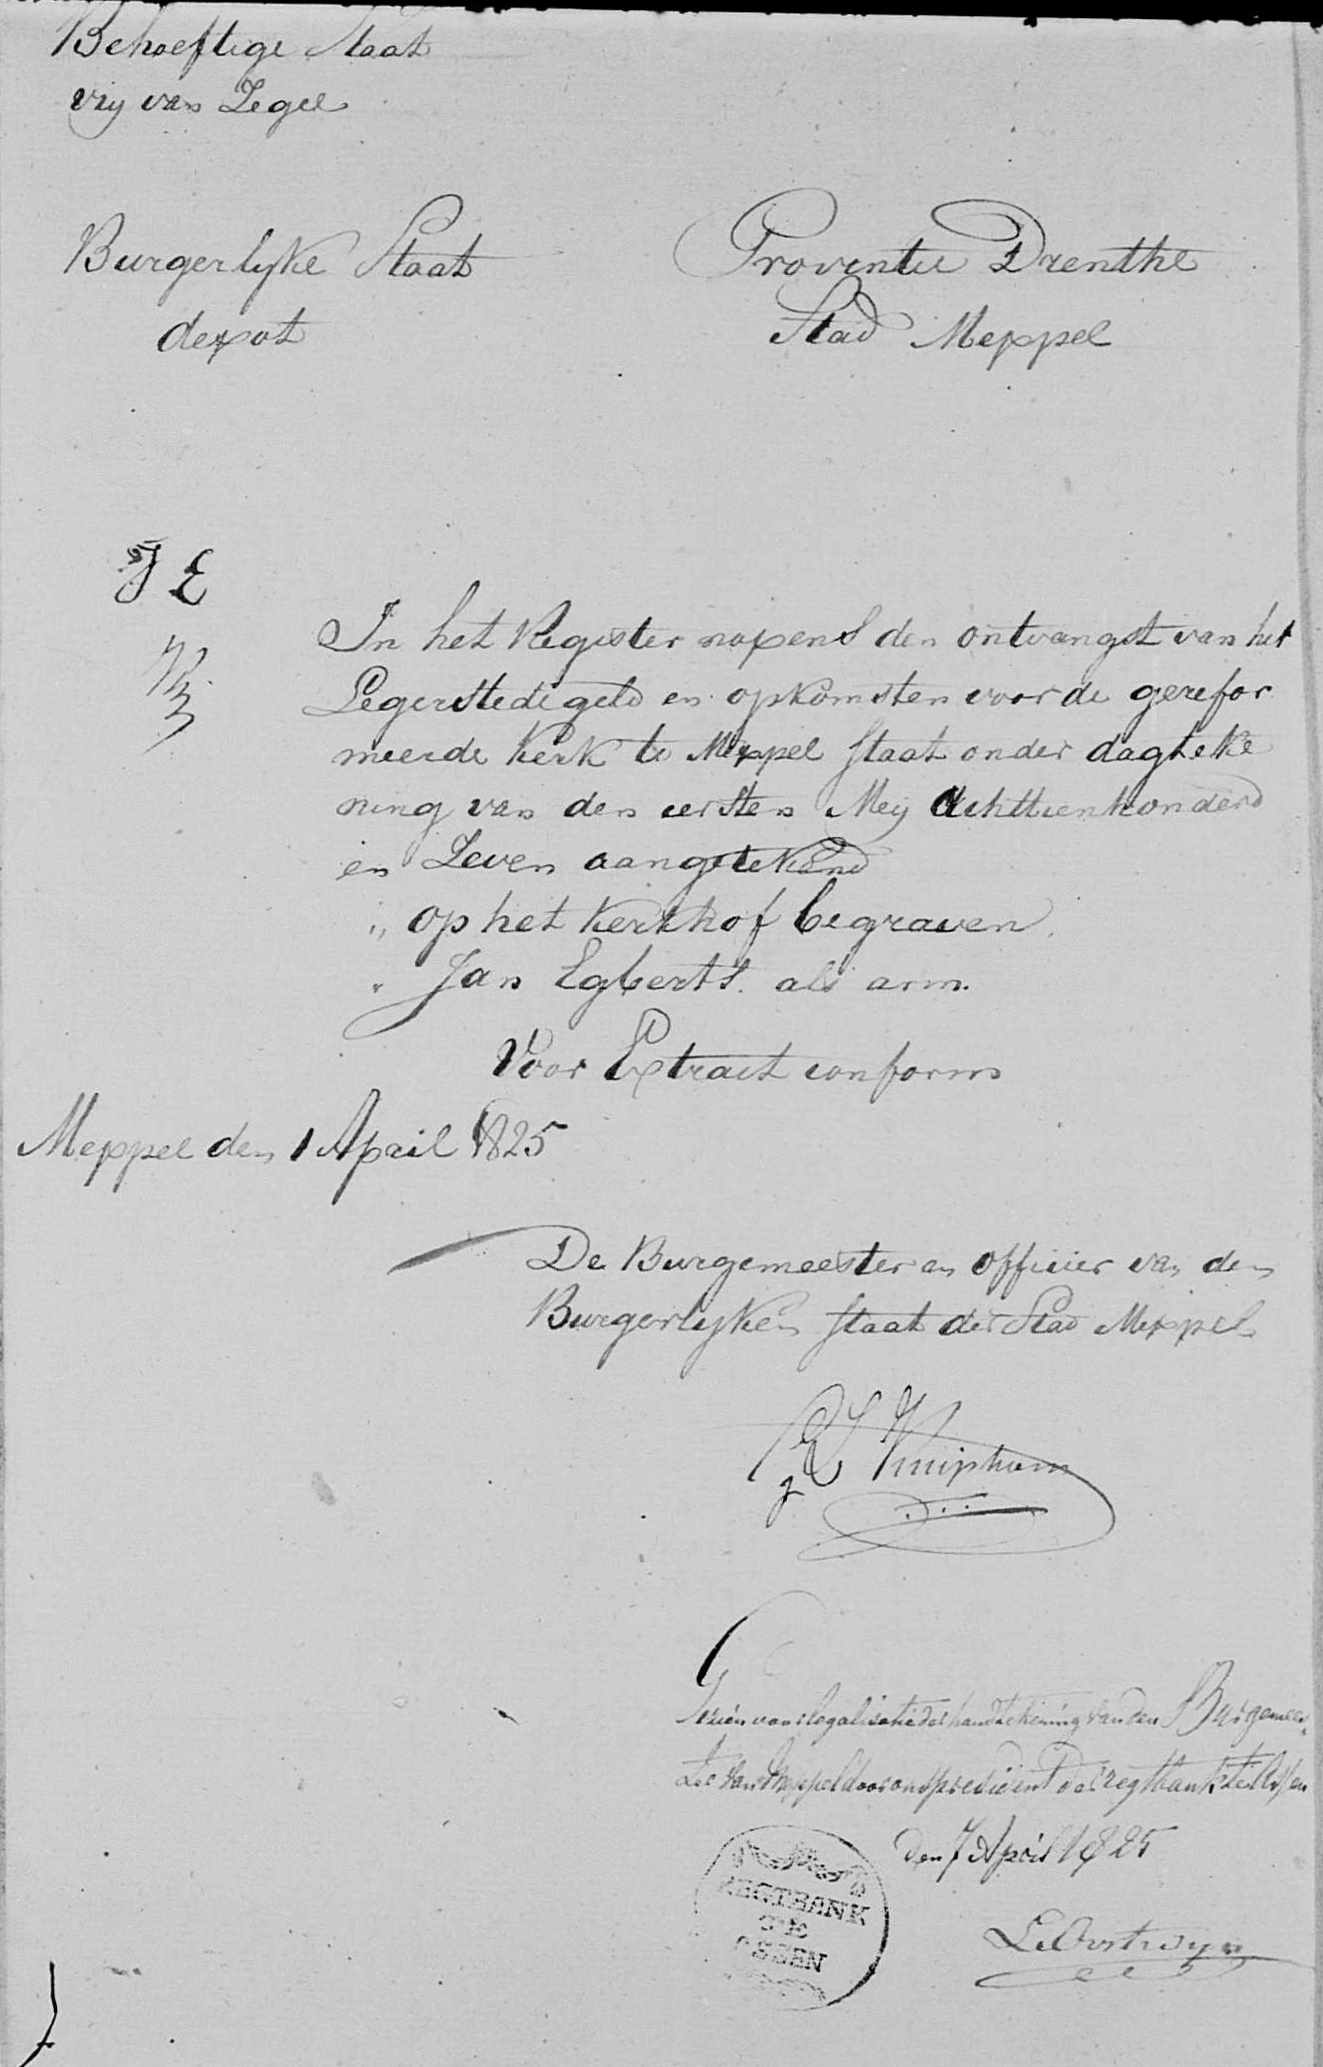 Behoeftige Staat
vry van Zegel
Burgerlyke Staat
depot
Provintie Drenthe
Stad Meppel
J E
In het Register nopens den ontvangst van het
Legerstede geld en opkomsten voor de gerefor
meerde Kerk te Meppel staat onder dagteke
ning van den eersten Mey Achttienhonderd
en Zeven aangetekend
„ op het Kerkhof begraven.
„ Jan Egberts. als arm.
Voor Extract conform
Meppel den 1 April 1825
De Burgemeester en officier van den
Burgerlyken staat der Stad Meppel
Kniphorst
Gezien voor legalisatie der handtekening van den Burgemees-
ter van Meppel door ons president der regtbank te Assen
den 7 April 1825
REGTBANK
TE
ASSEN